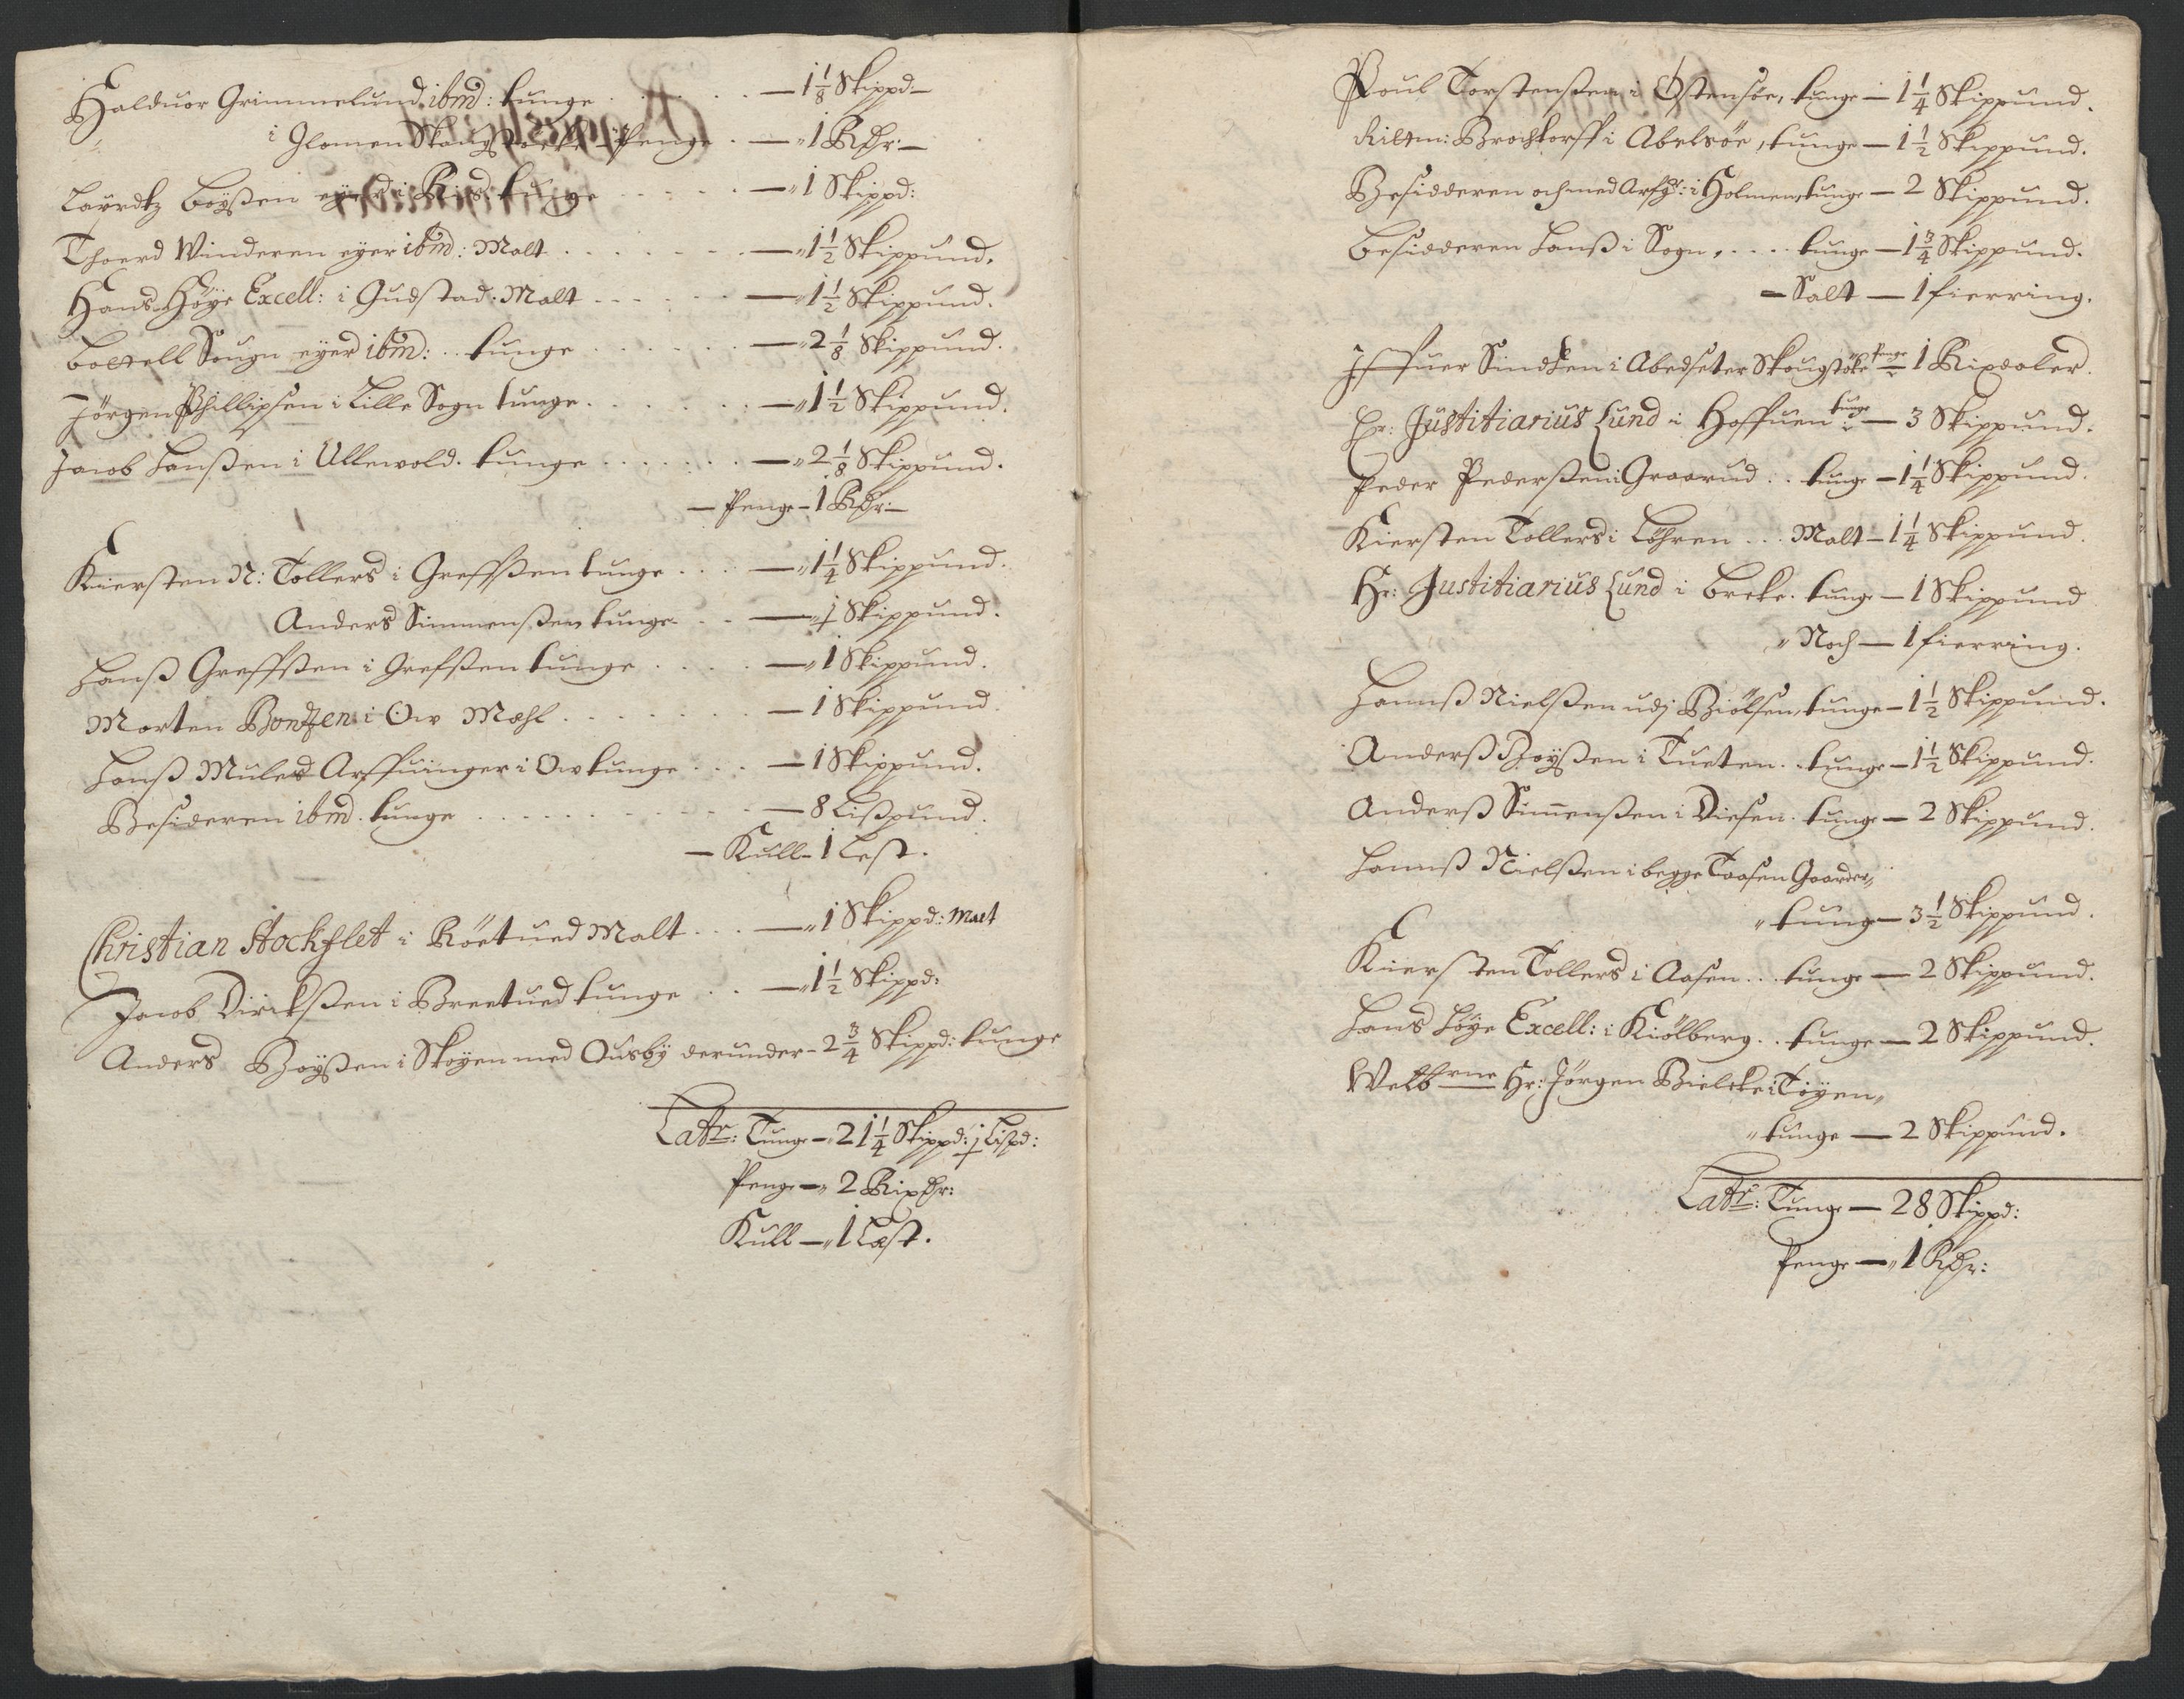 Halduor Grimmelund ibm̄d: tunge . . . . — 1 1/8 Skippd —
i Glomen Skougstöcke – Penge . — „ 1 Rdr: —
Laurdtz Boyßen eyer i Riis tunge . . . . . — „ 1 Skippd:
Thoerd Winderen eyer ibm̄d: Malt . . . . . . — „ 1 1/2 Skippund.
Hans Höye Excell: i Gudstad. Malt . . . . . — „ 1 1/2 Skippund.
Sougn eyer ibm̄d: . . tunge . . . . . . — „ 2 1/8 Skippund.
Jörgen Phillipsen i Lille Sogn tunge . . . . . — „ 1 1/2 Skippund.
Jacob Hanßen i Ullewold. tunge . . . . . . . — „ 2 1/8 Skippund.
— Penge – 1 Rdr: —
Kiersten N: Tollers i Greffßen tunge . . . — „ 1 1/4 Skippund.
Anders Simmenßen tunge . . — „ 1 Skippund.
Hanß Greffßen i Grefßen tunge . . . . — „ 1 Skippund.
Morten Bondzen i Ow Mæhl . . . . . . — 1 Skippund.
Hanß Mulers Arffuinger i Ow tunge . . . — 1 Skippund.
Besideren ibm̄d. tunge . . . . . . . . . — 8 Lißpund.
— Kull – 1 Lest.
Christian Stockflet i Röetued Malt . . . — „ 1 Skippd: Malt
Jacob Dirckßen i Breetued tunge . . — „ 1 1/2 Skippd:
Anders Boyßen i Skoyen med Ousby derunder – 2 3/4 Skippd: tunge
Latr: Tunge – „ 21 1/4 Skippd: 1 Lißpd:
Penge — „ 2 Rixdr:
Kull — „ 1 Læst.
Poul Torstenßen i Østensöe, tunge — 1 1/4 Skippund.
Ritm: Brochtorff i Abelsöe, tunge — 1 1/2 Skippund.
Besidderen och med Arfg: i Holmen, tunge — 2 Skippund.
Besidderen Hanß i Sogn, . . . . tunge — 1 3/4 Skippund.
– Salt — 1 fierring.
Iffuer Sindsen i Abedseter Skougstöke Penge — 1 Rixdaler.
Hr: Justitiarius Lund i Hoffuen tunge — 3 Skippund.
Peder Pederßen i Graarud . . tunge — 1 1/4 Skippund.
Kiersten Tollers i Löhren . . . Malt — 1 1/4 Skippund.
Hr: Justitiarius Lund i Breke. tunge — 1 Skippund
„ Noch — 1 fierring.
Hannß Nielßen udj Biölsen, tunge — 1 1/2 Skippund.
Anderß Boyßen i Tueten . . tunge — 1 1/2 Skippund.
Anderß Sim̄enßen i Diesen. tunge — 2 Skippund.
Hannß Nielßen i begge Taasen Gaarder „
„ tunge — 3 1/2 Skippund.
Kiersten Tollers i Aasen . . . tunge — 2 Skippund.
Hans Höye Excell: i Kiölberg . . tunge — 2 Skippund.
Welbrne Hr: Jörgen Bielcke i Töyen „
„ tunge — 2 Skippund.
Latr: Tunge — 28 Skippd:
Penge — „ 1 Rdr: